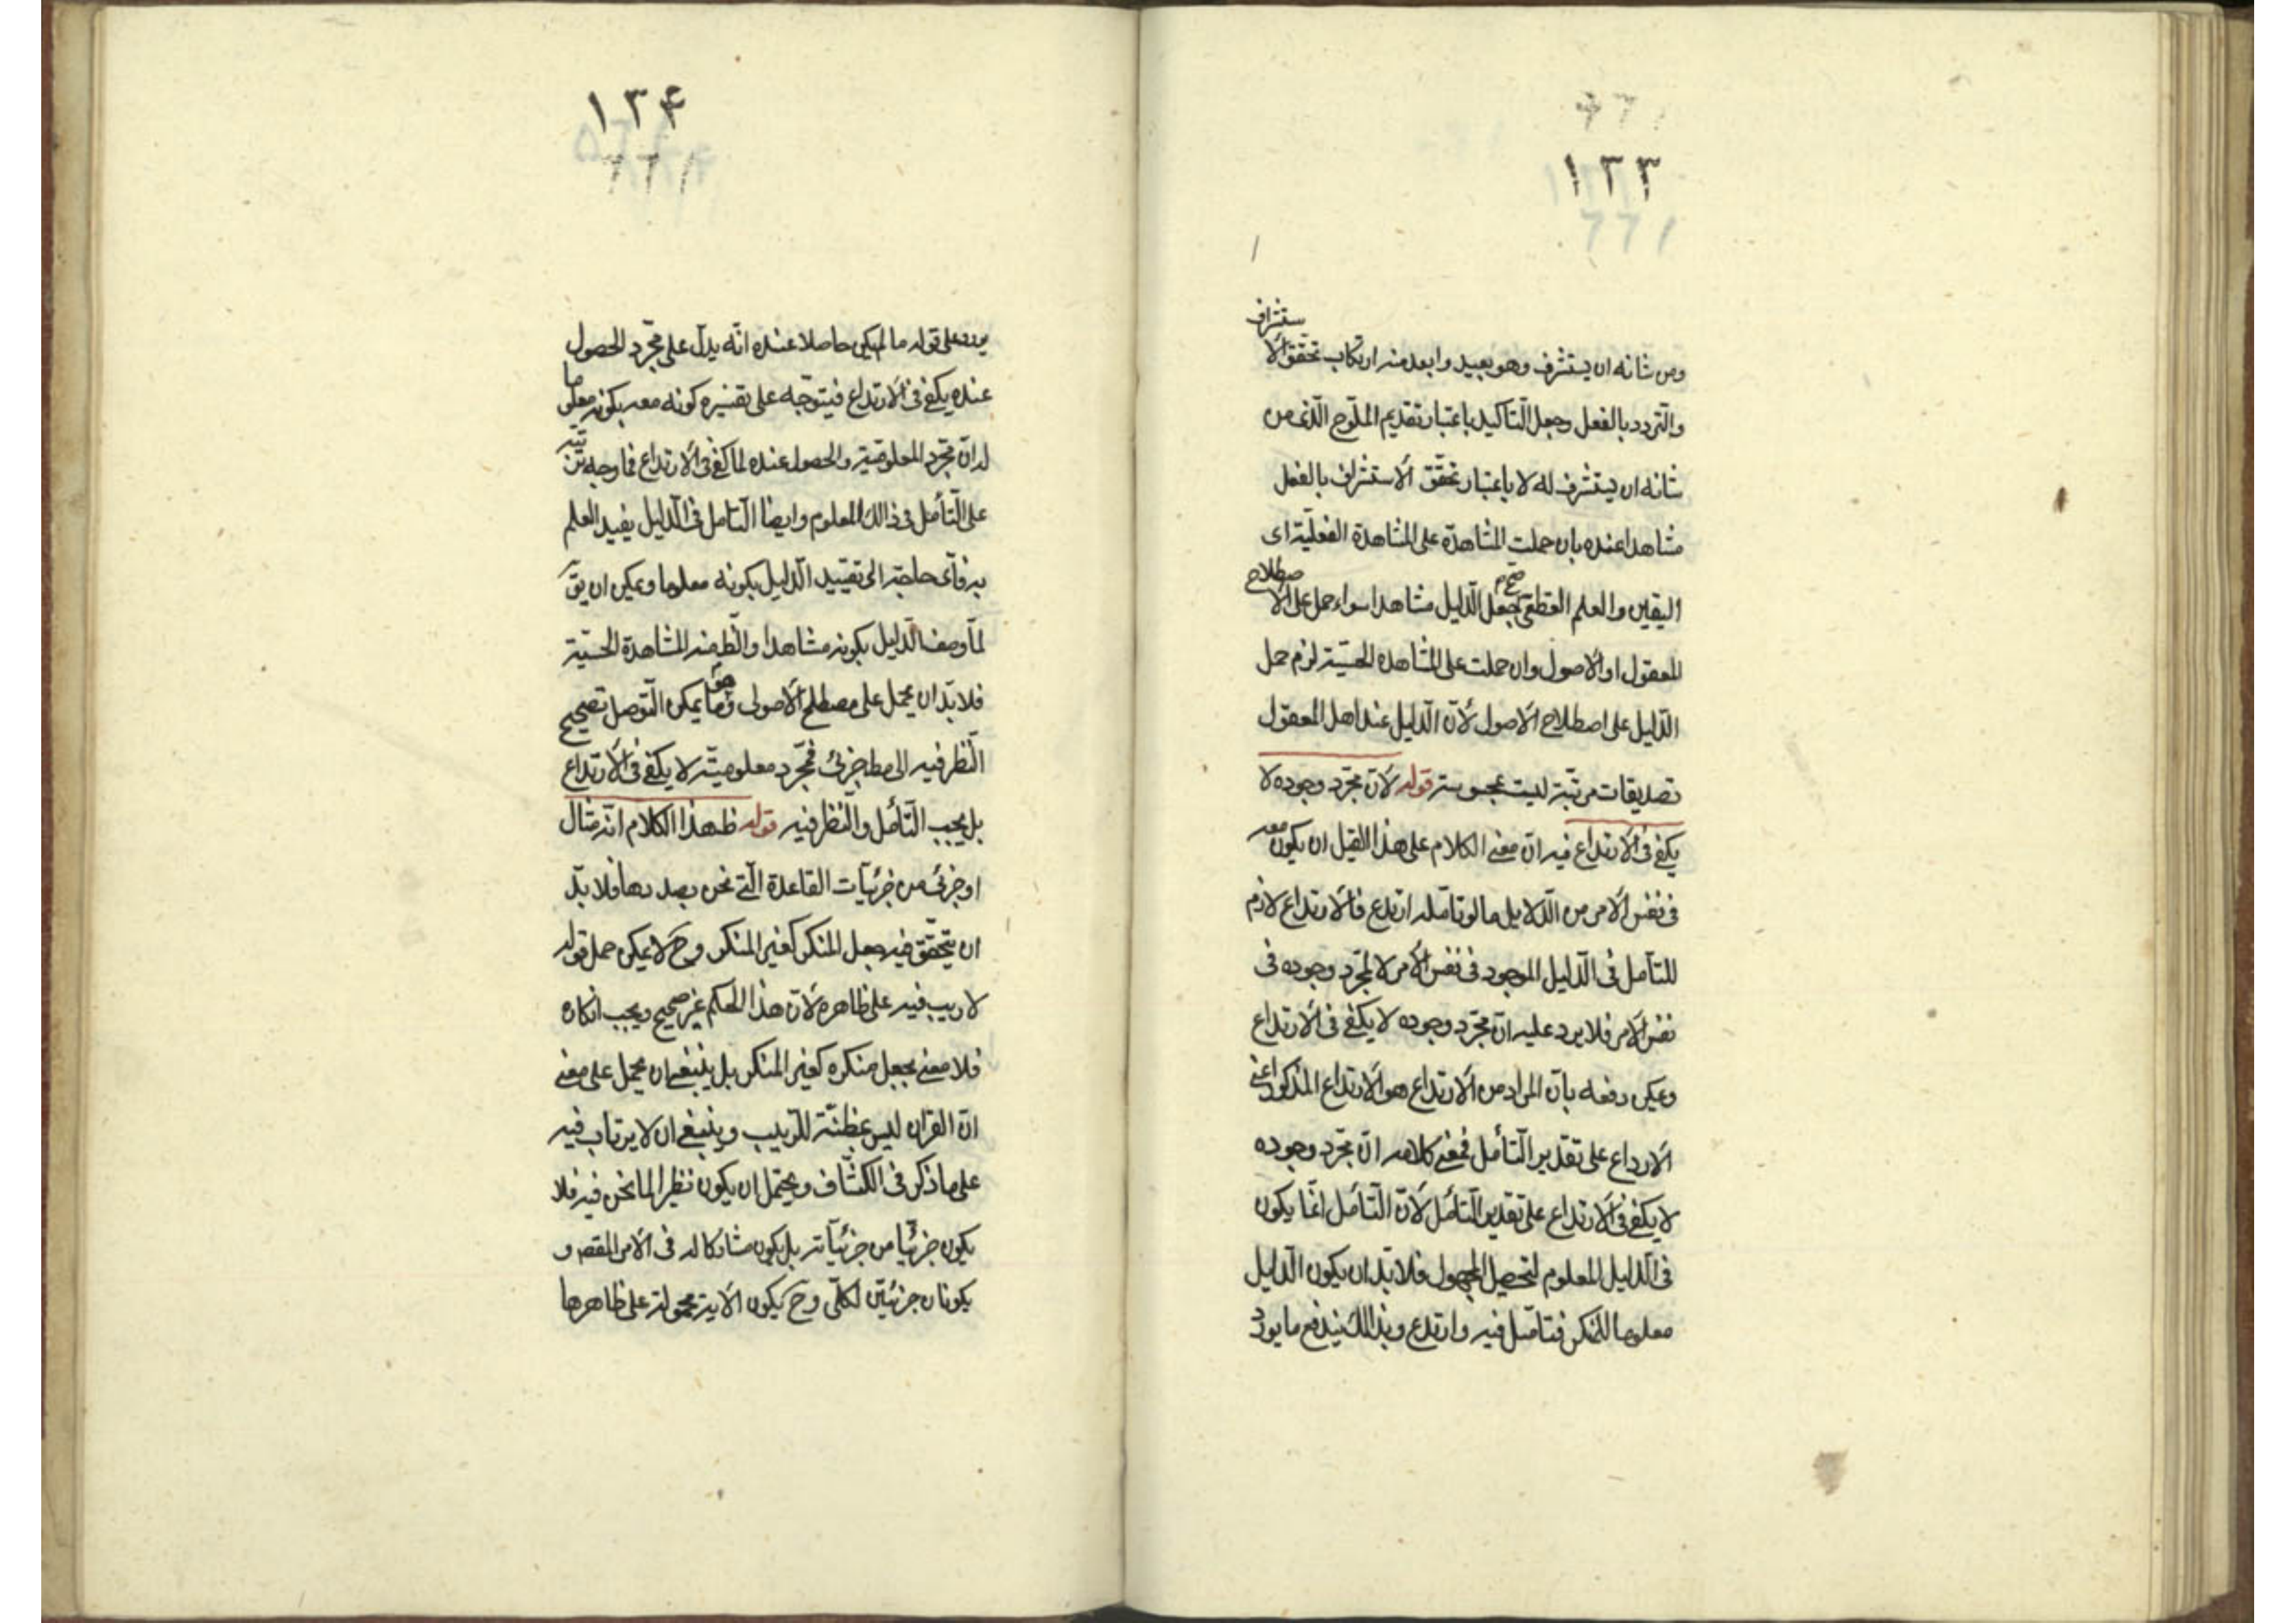 ١٣٣
ومن شانه ان يستشرف وهو بعيد وابعد منه ارتكاب تحقق الاستشراف
والتردد بالفعل وجعل التاكيد باعتبار تقديم الملوح الذى من
شانه ان يستشرف له لا باعتبار تحقق الاستشراف بالفعل
مشاهدا عنده بان حملت المشاهدة على المشاهدة الفعلية اى
اليقين والعلم القطعى صح جعل الدليل مشاهدا سواء حمل على الاصطلاح
المعقول او الاصول وان حملت على المشاهده الحسية لزم حمل
الدليل على اصطلاح الاصول لان الدليل عند اهل المعقول
تصديقات مرتبة ليست بمحسوسة قوله لان مجرد وجوده لا
يكفى فى الارتداع فيه ان معنى الكلام على هذا القيل ان يكون معه
فى نفس الامر من الدلايل ما لو تامله ارتدع فالارتداع لازم
للتامل فى الدليل الموجود فى نفس الامر لا لمجرد وجوده فى
نفس الامر فلا يرد عليه ان مجرد وجوده لا يكفى فى الارتداع
ويمكن دفعه بان المراد من الارتداع هو الارتداع المذكور اعنى
الارداع على تقدير التأمل فمعنى كلامه ان مجرد وجوده
لا يكفى فى الارتداع على تقدير التأمل لان التأمل انما يكون
فى الدليل المعلوم لتحصيل المجهول فلا بد ان يكون الدليل
معلوما للمنكر فتامل فيه وارتدع وبذلك يندفع ما يورد
١٣۴
على قوله ما لم يكن حاصلا عنده انه يدل على مجرد الحصول
عنده يكفى فى الارتداع فيتوجه على تفسيره كونه معه بكونه معلوما
له ان مجرد المعلومية والحصول عنده لما كفى فى الارتداع فما وجه
على التأمل فى ذالك المعلوم وايضا التامل فى الدليل يفيد العلم
به فاى حاجة الى تقييد الدليل بكونه معلوما ويمكن ان يق
لما وصف الدليل بكونه مشاهدا والظ منه المشاهدة الحسية
فلا بد ان يحمل على مصطلح الاصولى وهو ما يمكن التوصل بصحيح
النظر فيه الى مط جزئى فمجرد معلوميته لا يكفى فى الارتداع
بل يجب التأمل والنظر فيه قوله ظ هذا الكلام انه مثال
او جزئى من جزئيات القاعدة التى نحن بصددها فلا بد
ان يتحقق فيه جعل المنكر كغير المنكر وح لا يمكن حمل قوله
لا ريب فيه على ظاهره لان هذا الحكم غير صحيح ويجب انكاره
فلا معنى لجعل منكره كغير المنكر بل ينبغى ان يحمل على معنى
ان القران ليس بمظنة للريب وينبغى ان لا يرتاب فيه
على ما ذكر فى الكشاف ويحتمل ان يكون نظيرا لما نحن فيه فلا
يكون جزئيا من جزئياته بل يكون مشاركا له فى الامر المقصد و
يكونان جزئيين لكلى وح يكون الاية محمولة على ظاهرها